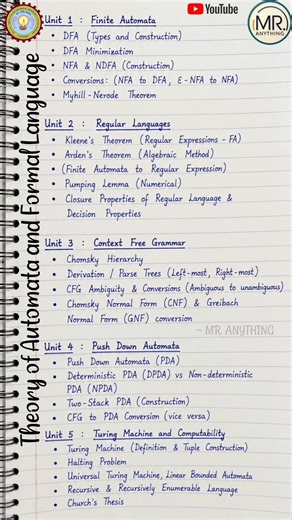 YouTube
MR.
ANYTHING
Theory of Automata and Formal Language
Unit 1 : Finite Automata
• DFA (Types and Construction)
• DFA Minimization
• NFA & NDFA (Construction)
• Conversions: (NFA to DFA, ε-NFA to NFA)
• Myhill-Nerode Theorem
Unit 2 : Regular Languages
• Kleene's Theorem (Regular Expressions - FA)
• Arden's Theorem (Algebraic Method)
• (Finite Automata to Regular Expression)
• Pumping Lemma (Numerical)
• Closure Properties of Regular Language &
Decision Properties
Unit 3 : Context Free Grammar
• Chomsky Hierarchy
• Derivation / Parse Trees (Left-most, Right-most)
• CFG Ambiguity & Conversions (Ambiguous to unambiguous)
• Chomsky Normal Form (CNF) & Greibach
Normal Form (GNF) conversion
– MR. ANYTHING
Unit 4 : Push Down Automata
• Push Down Automata (PDA)
• Deterministic PDA (DPDA) vs Non-deterministic
PDA (NPDA)
• Two-Stack PDA (Construction)
• CFG to PDA Conversion (vice versa)
Unit 5 : Turing Machine and Computability
• Turing Machine (Definition & Tuple Construction)
• Halting Problem
• Universal Turing Machine, Linear Bounded Automata
• Recursive & Recursively Enumerable Language
• Church's Thesis